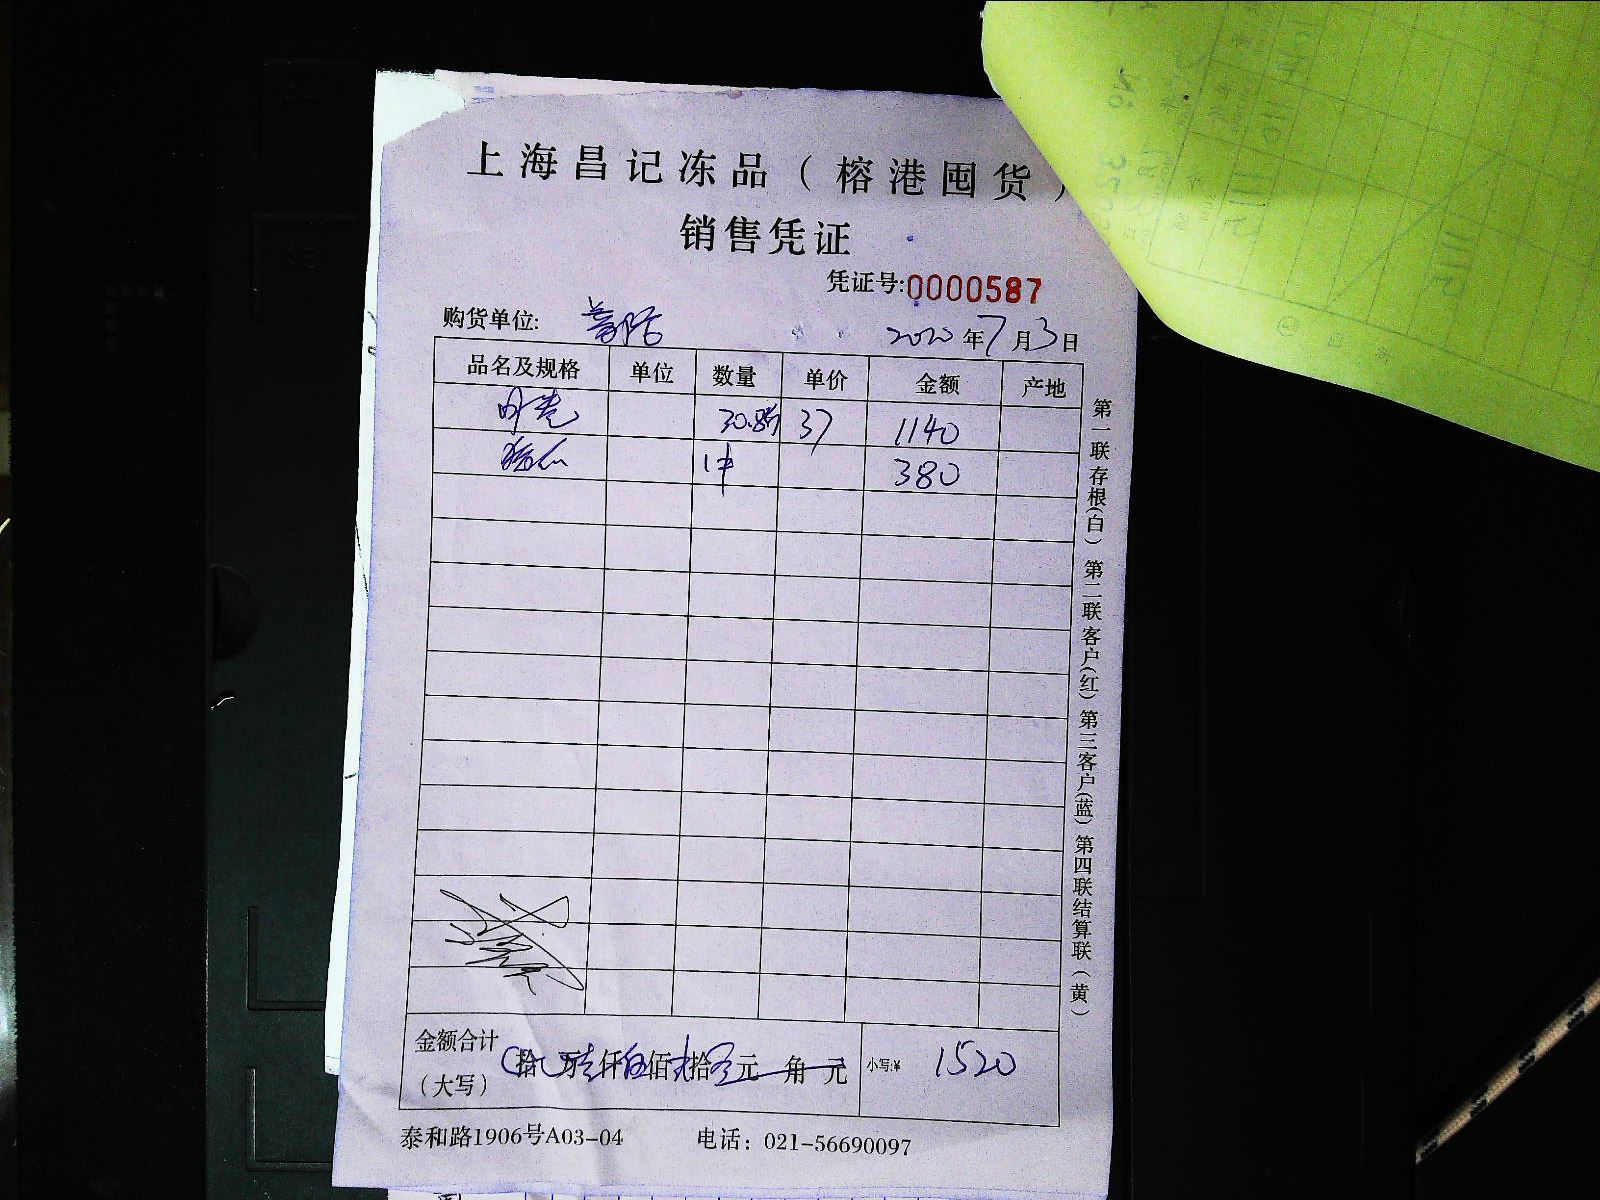 上海昌记冻品（榕港囤货）
销售凭证
凭证号:0000587
购货单位:
2020年7月3日
品名及规格 单位 数量 单价 金额 产地
30.8斤 37 1140
1件 380
金额合计（大写） 拾 万壹仟伍佰贰拾元 角 元 小写:¥ 1520
泰和路1906号A03-04 电话：021-56690097
第一联存根(白) 第二联客户(红) 第三客户(蓝) 第四联结算联(黄)